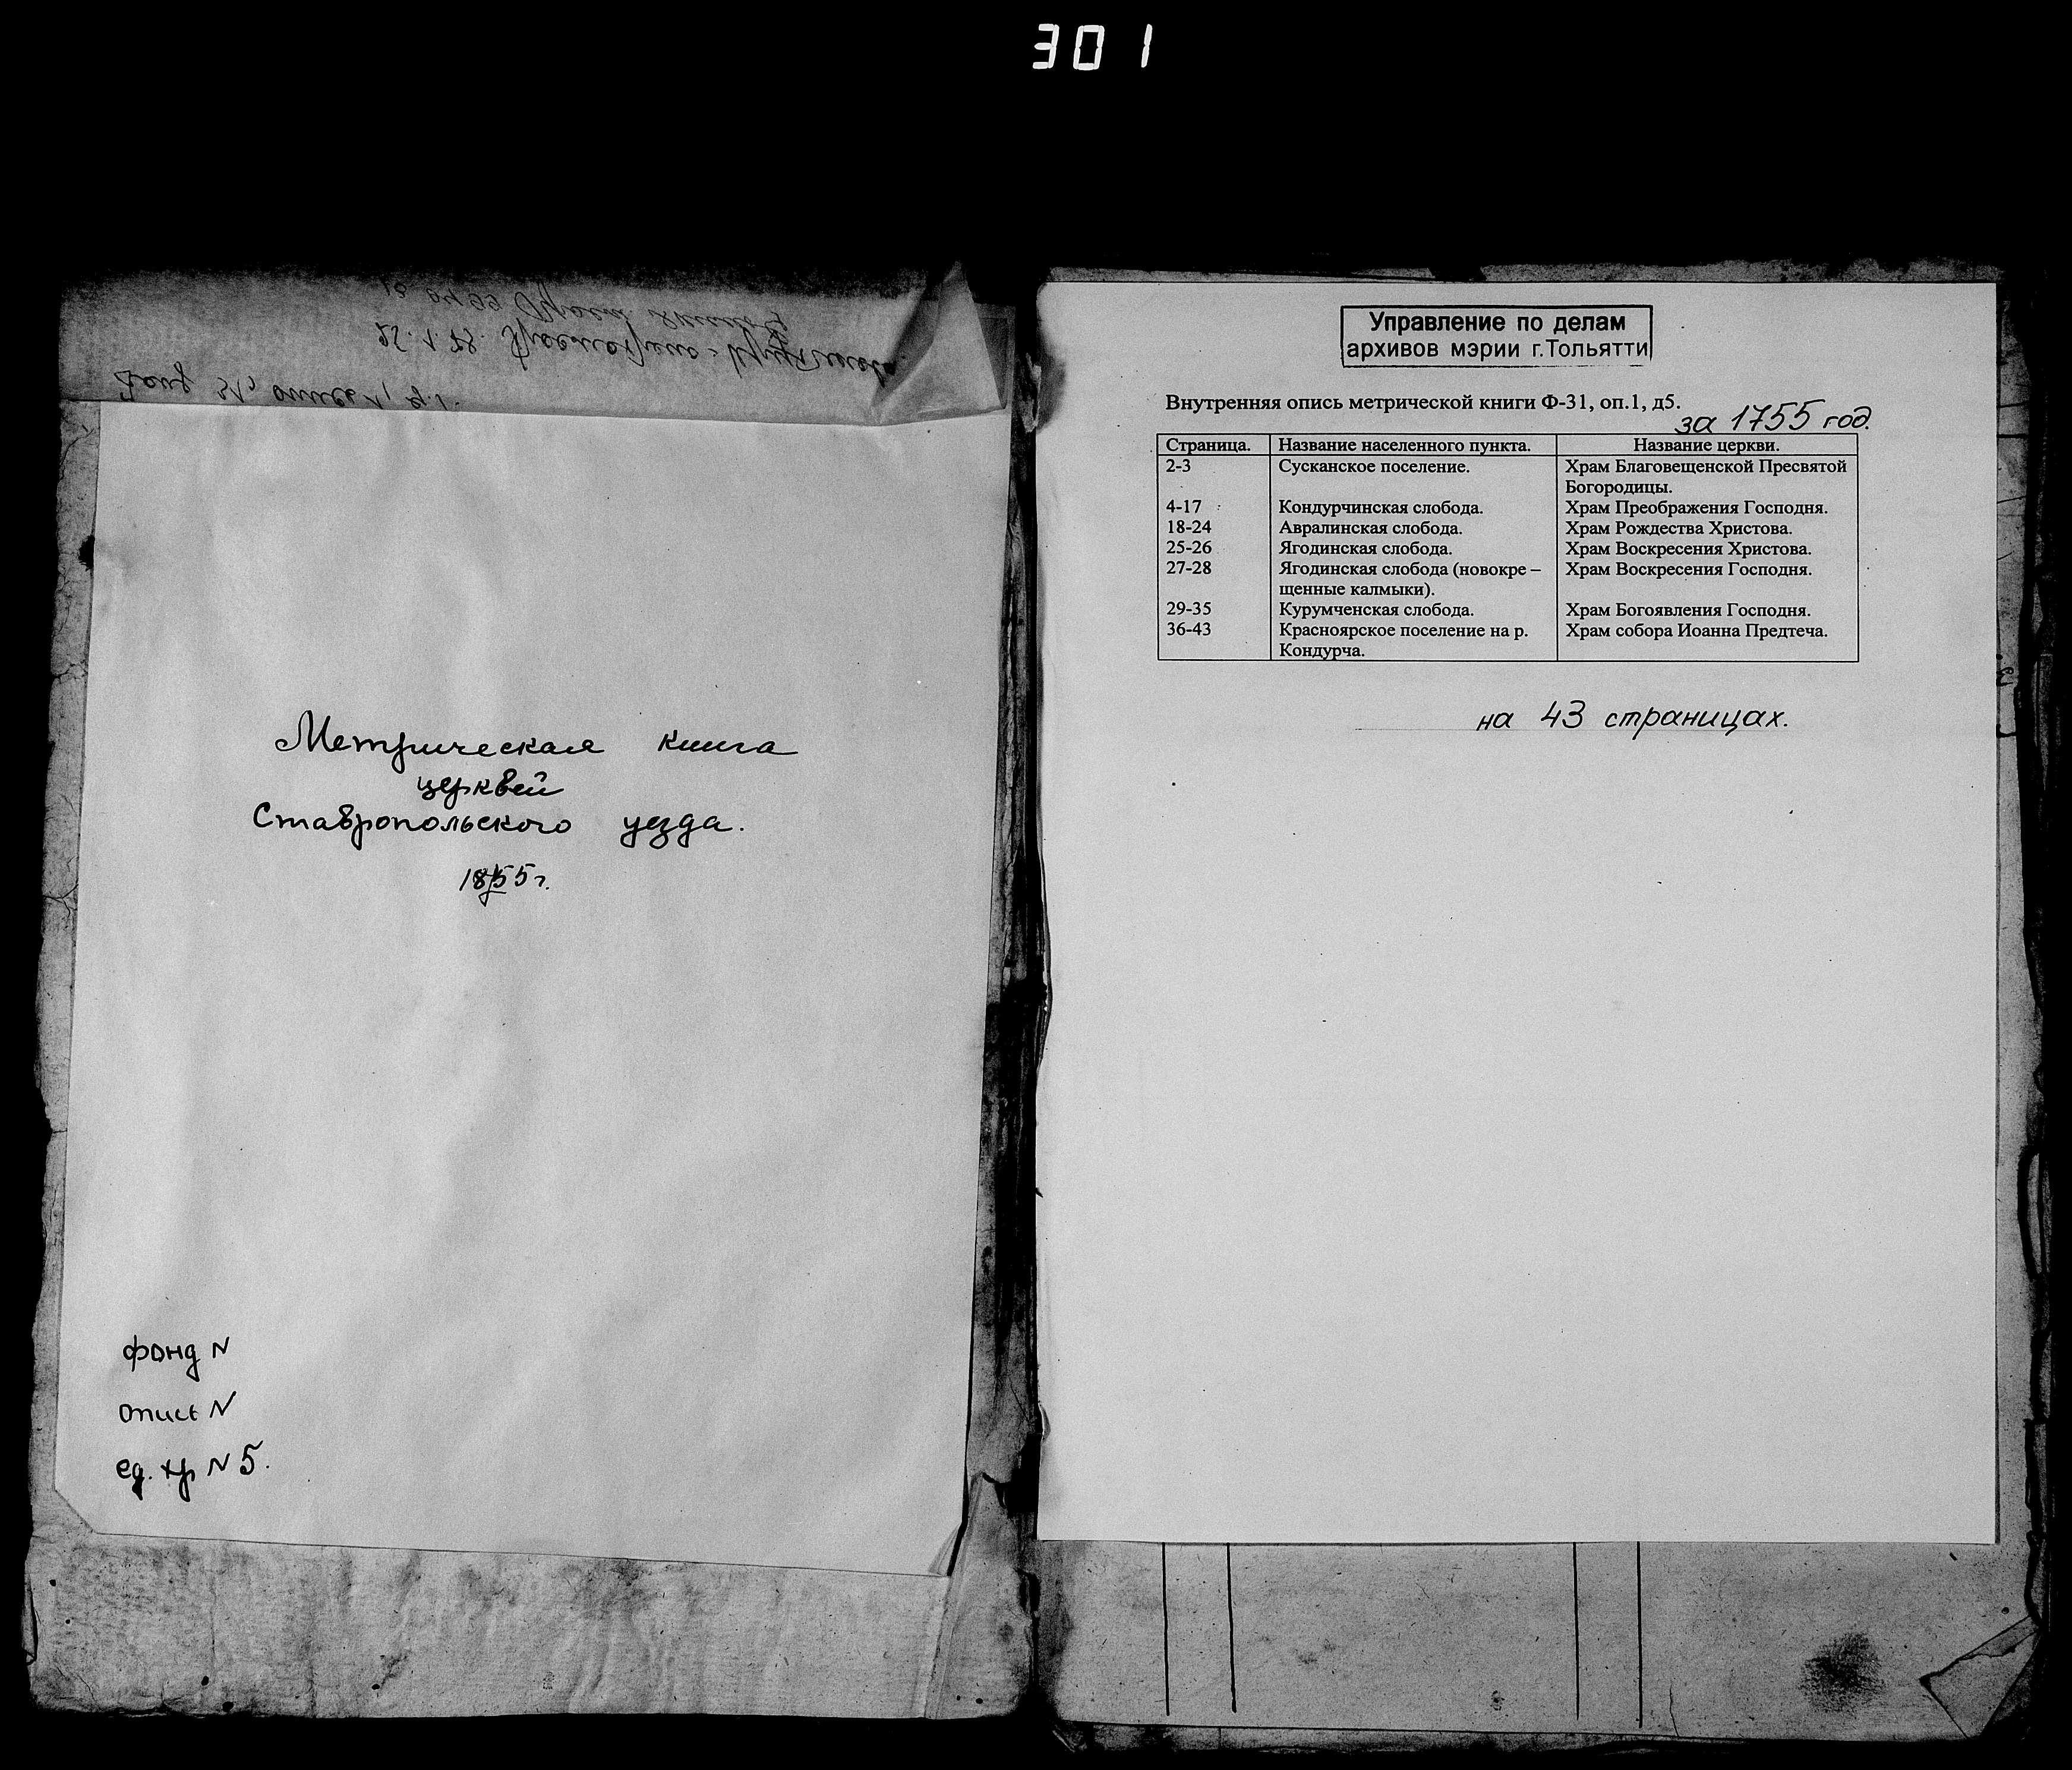 301
Метрическая книга
церквей
Ставропольского уезда.
1855г.
фонд N
опись N
ед. хр N 5.
Управление по делам
архивов мэрии г.Тольятти
Внутренняя опись метрической книги Ф-31, оп.1, д5.
за 1755 год.
Страница. Название населенного пункта. Название церкви.
2-3 Сусканское поселение. Храм Благовещенской Пресвятой
Богородицы.
4-17 Кондурчинская слобода. Храм Преображения Господня.
18-24 Авралинская слобода. Храм Рождества Христова.
25-26 Ягодинская слобода. Храм Воскресения Христова.
27-28 Ягодинская слобода (новокре – Храм Воскресения Господня.
щенные калмыки).
29-35 Курумченская слобода. Храм Богоявления Господня.
36-43 Красноярское поселение на р. Храм собора Иоанна Предтеча.
Кондурча.
на 43 страницах.